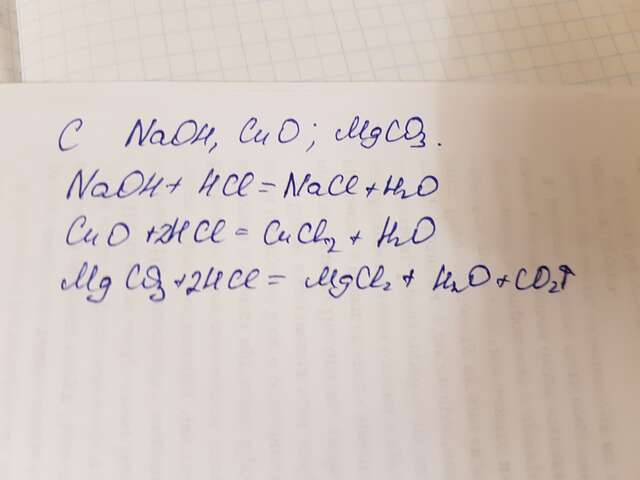 С NaOH, CuO; MgCO₃.
NaOH + HCl = NaCl + H₂O
CuO + 2HCl = CuCl₂ + H₂O
MgCO₃ + 2HCl = MgCl₂ + H₂O + CO₂↑